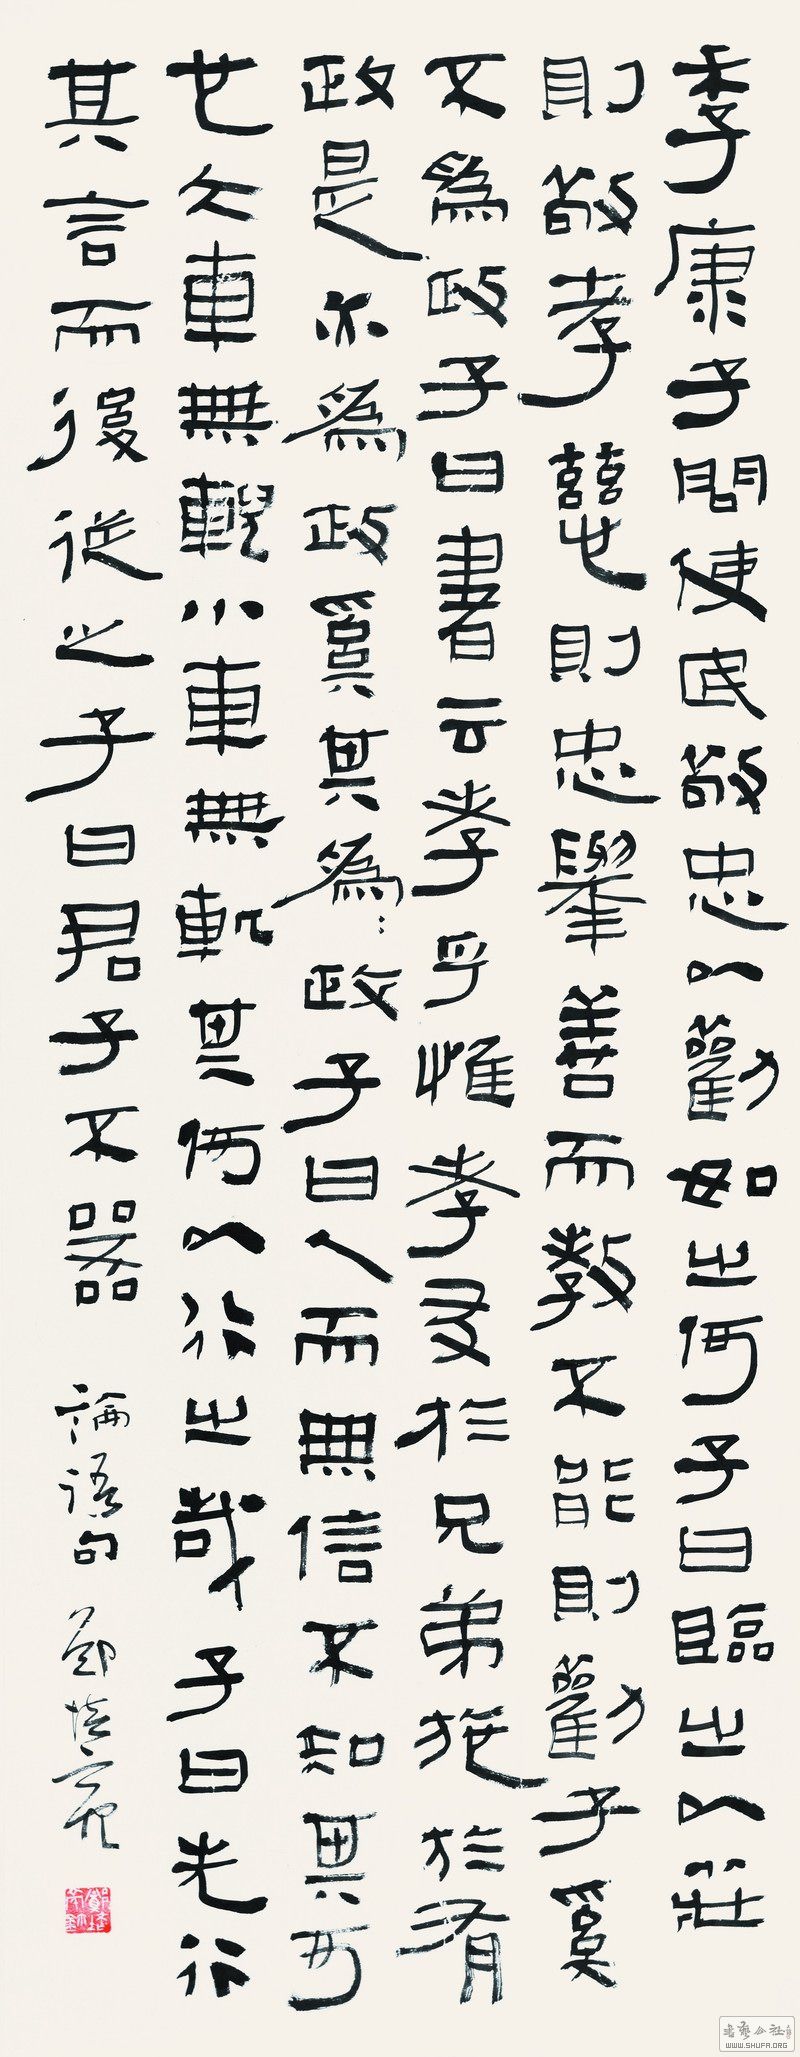 季康子問使民敬忠以勸如之何子曰臨之以莊
則敬孝慈則忠舉善而教不能則勸子奚
不為政子曰書云孝乎惟孝友於兄弟施於有
政是亦為政奚其為〻政子曰人而無信不知其可
也大車無輗小車無軏其何以行之哉子曰先行
其言而後從之子曰君子不器
論語句 鄭培亮
書藝公社
WWW.SHUFA.ORG